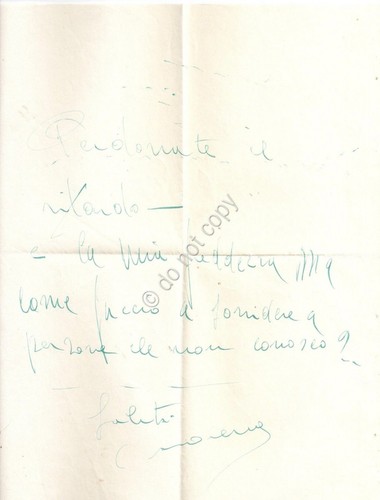 Perdonate il
ritardo —
e la mia freddezza ma
come faccio a sorridere a
persone che non conosco?
Saluti
© do not copy